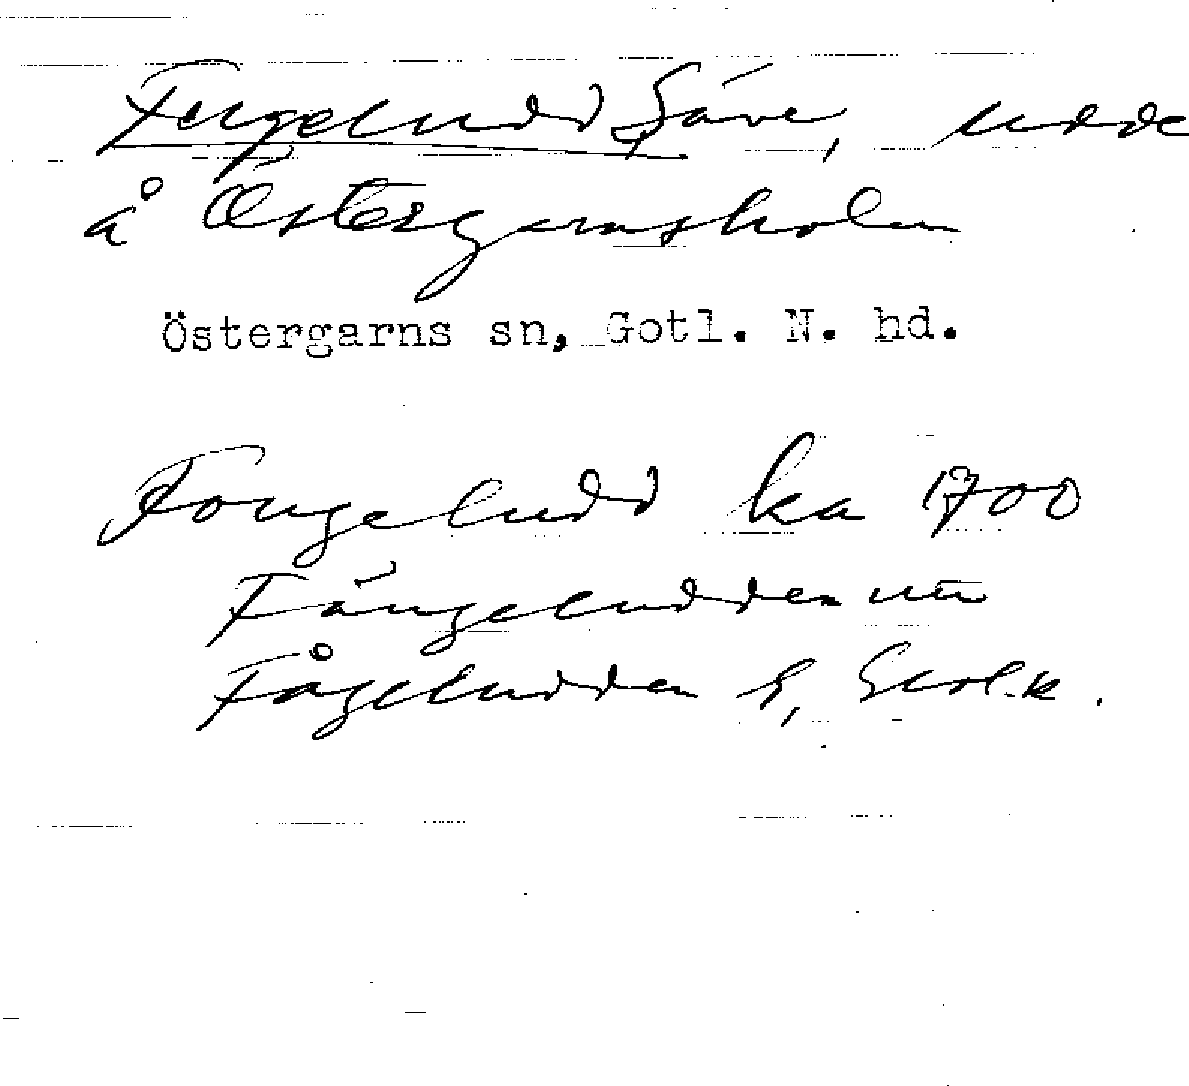 Fengeludd Säve, udde
å Östergarnsholm
Östergarns sn, Gotl. N. hd.
Fongeludd ka 1700
Fängeludden nu
Fågeludden G, Geol.k.